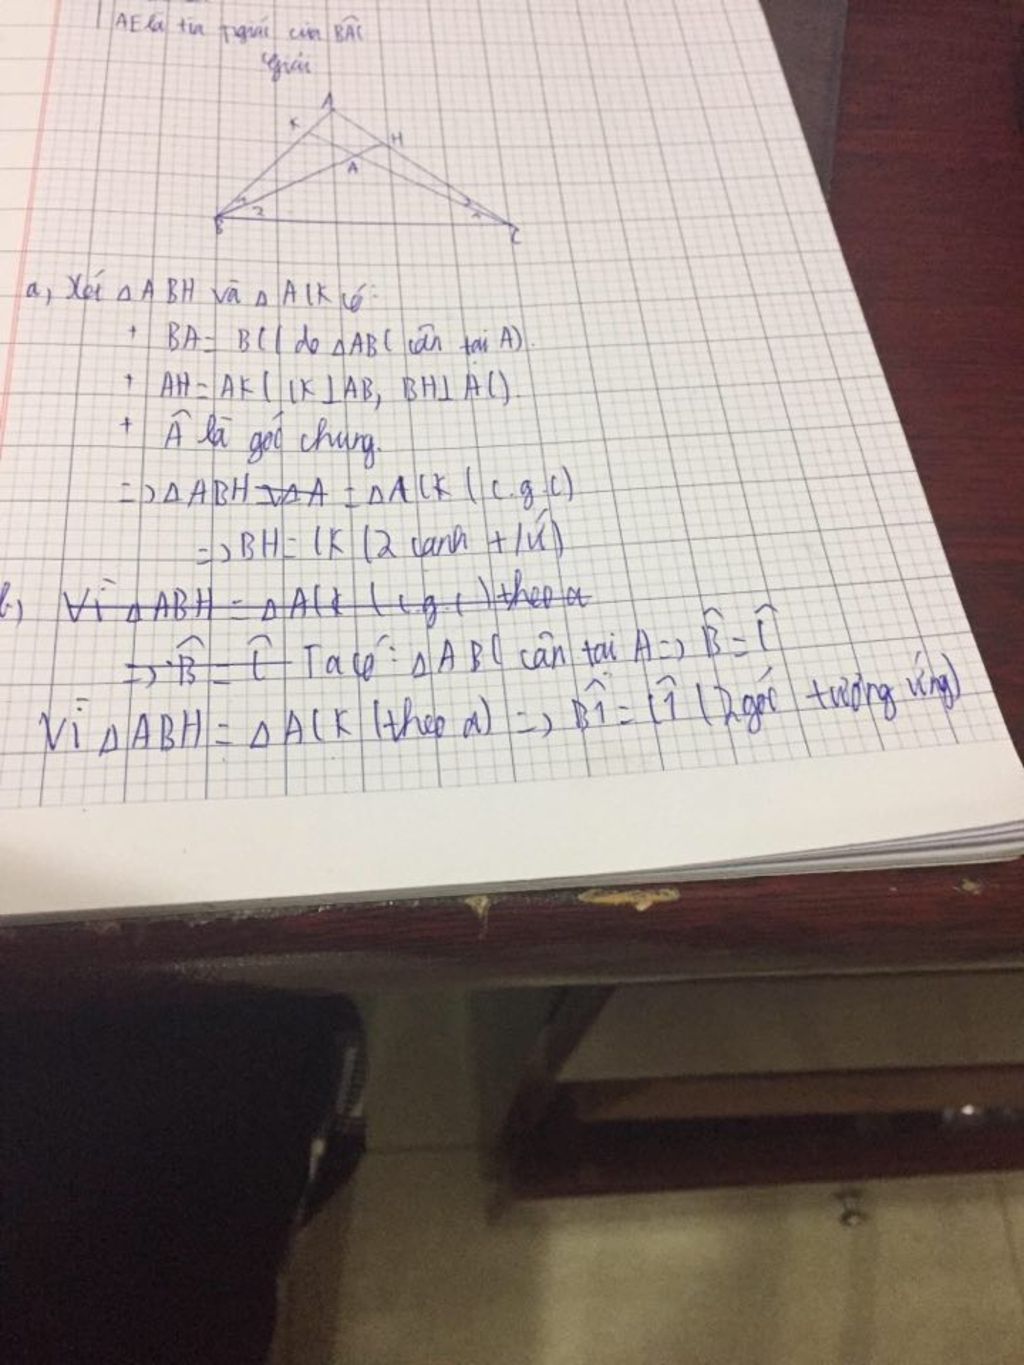 AE là tia pgiác của BÂC
Giải
A
K
H
A
1
2
2
1
B
C
a, Xét ΔABH và ΔACK có:
+ BA = BC (do ΔABC cân tại A).
+ AH = AK (CK⊥AB, BH⊥AC).
+ Â là góc chung.
=> ΔABH = ΔACK (c.g.c)
=> BH = CK (2 cạnh t/ứ)
b, Vì ΔABH = ΔACK (c g c) theo a
=> B̂ = Ĉ Ta có: ΔABC cân tại A => B̂ = Ĉ
Vì ΔABH = ΔACK (theo a) => B̂1 = Ĉ1 (2 góc tương ứng)